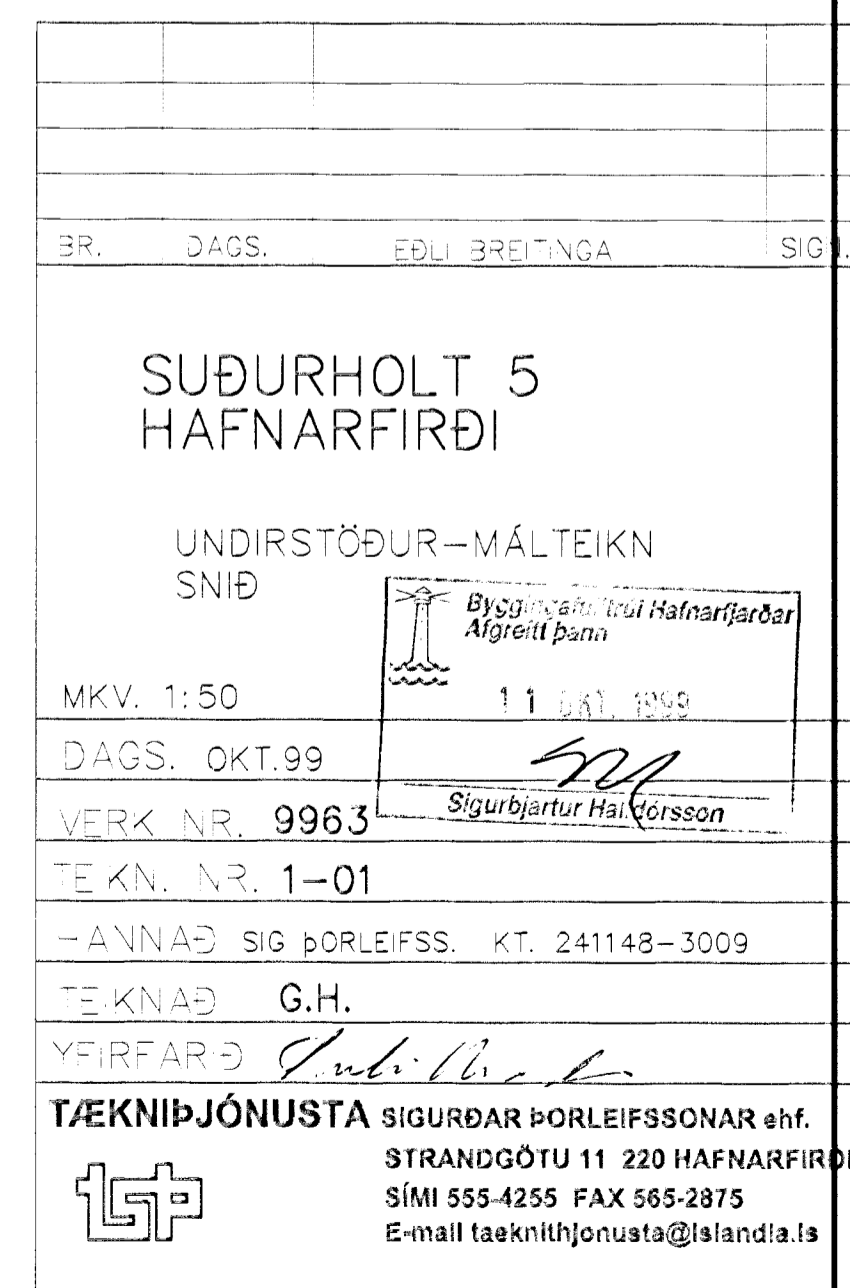 BR. DAGS. EÐLI BREITINGA SIGN.
SUÐURHOLT 5
HAFNARFIRÐI
UNDIRSTÖÐUR-MÁLTEIKN
SNIÐ
Byggingafulltrúi Hafnarfjarðar
Afgreitt þann
11 OKT. 1999
Sigurbjartur Halldórsson
MKV. 1:50
DAGS. OKT.99
VERK NR. 9963
TEIKN. NR. 1-01
HANNAÐ SIG ÞORLEIFSS. KT. 241148-3009
TEIKNAÐ G.H.
YFIRFARIÐ
TÆKNIÞJÓNUSTA SIGURÐAR ÞORLEIFSSONAR ehf.
STRANDGÖTU 11 220 HAFNARFIRÐI
SÍMI 555-4255 FAX 565-2875
E-mail taeknithjonusta@islandia.is
tsþ